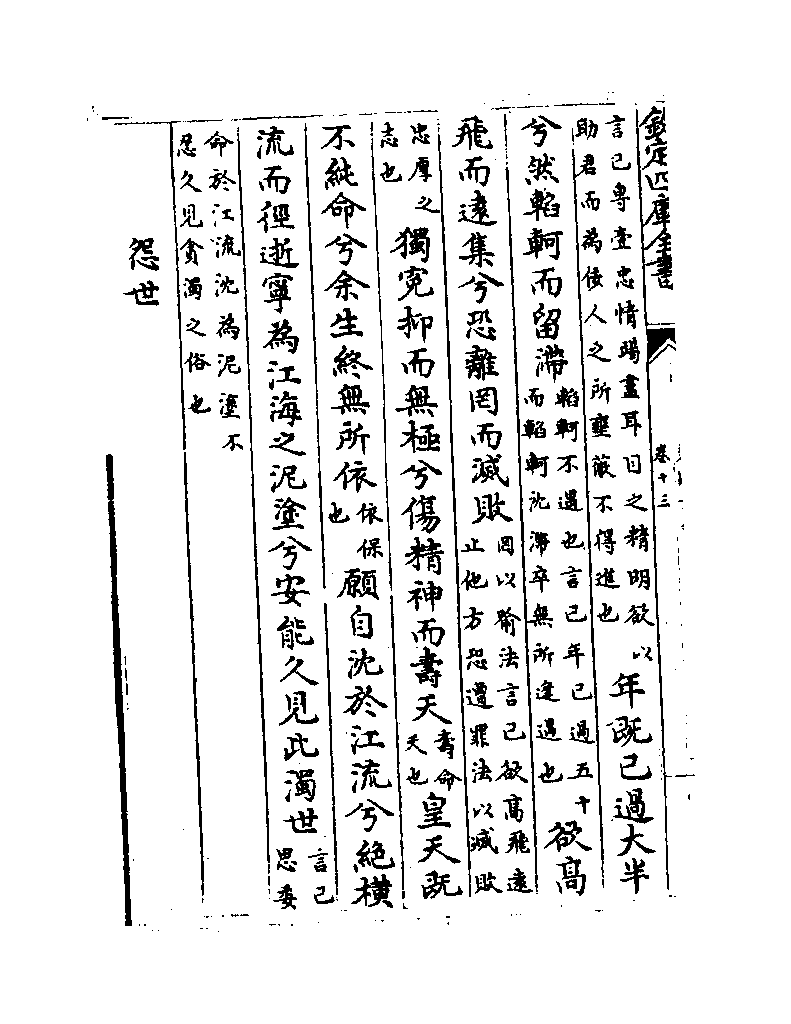 欽定四庫全書
卷十三
言己專壹忠情竭盡耳目之精明欲以
助君而為佞人之所壅蔽不得進也
年既已過大半
兮然輡軻而留滯
輡軻不遇也言己年已過五十
而輡軻沈滯卒無所逢遇也
欲高
飛而遠集兮恐離罔而滅敗
罔以喻法言己欲高飛遠
止他方恐遭罪法以滅敗
忠厚之
志也
獨寃抑而無極兮傷精神而壽夭
壽命
夭也
皇天既
不純命兮余生終無所依
依保
也
願自沈於江流兮絕橫
流而徑逝寧為江海之泥塗兮安能久見此濁世
言己
思委
命於江流沈為泥塗不
忍久見貪濁之俗也
怨世